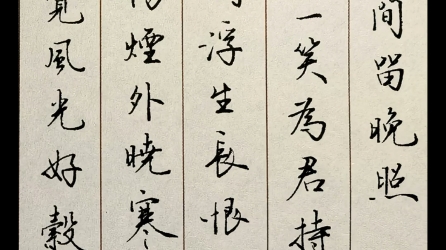 間留晚照
一笑為君持
浮生長恨
煙外曉寒
覓風光好縠